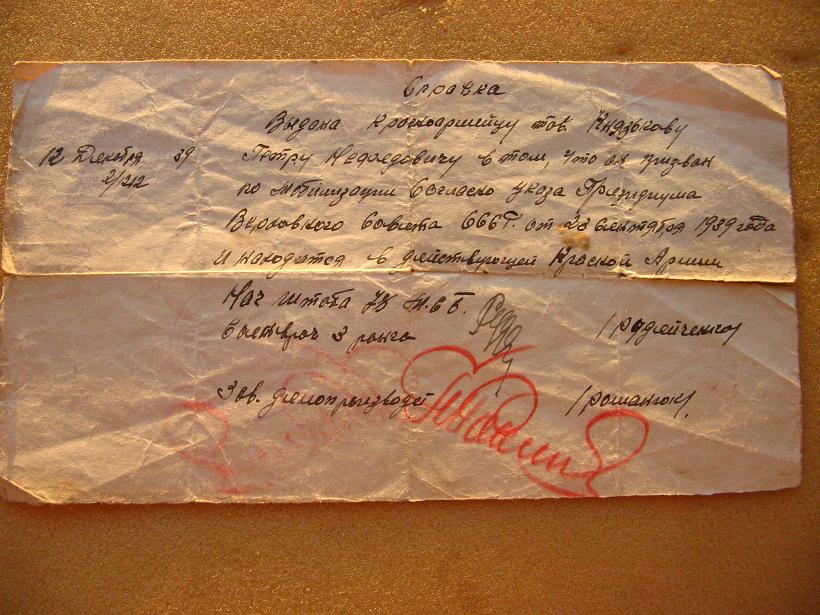 Справка
Выдана красноармейцу тов. Князькову
12 Декабря 39 Петру Нефедовичу в том, что он призван
2/212 по мобилизации Согласно указа Президиума
Верховного Совета СССР. от 23 Сентября 1939 года
И находится в действующей Красной Армии
Нач штаба 73
Воен врач 3 ранга /радзейченко/
Зав. делопроизвод /романюк/.